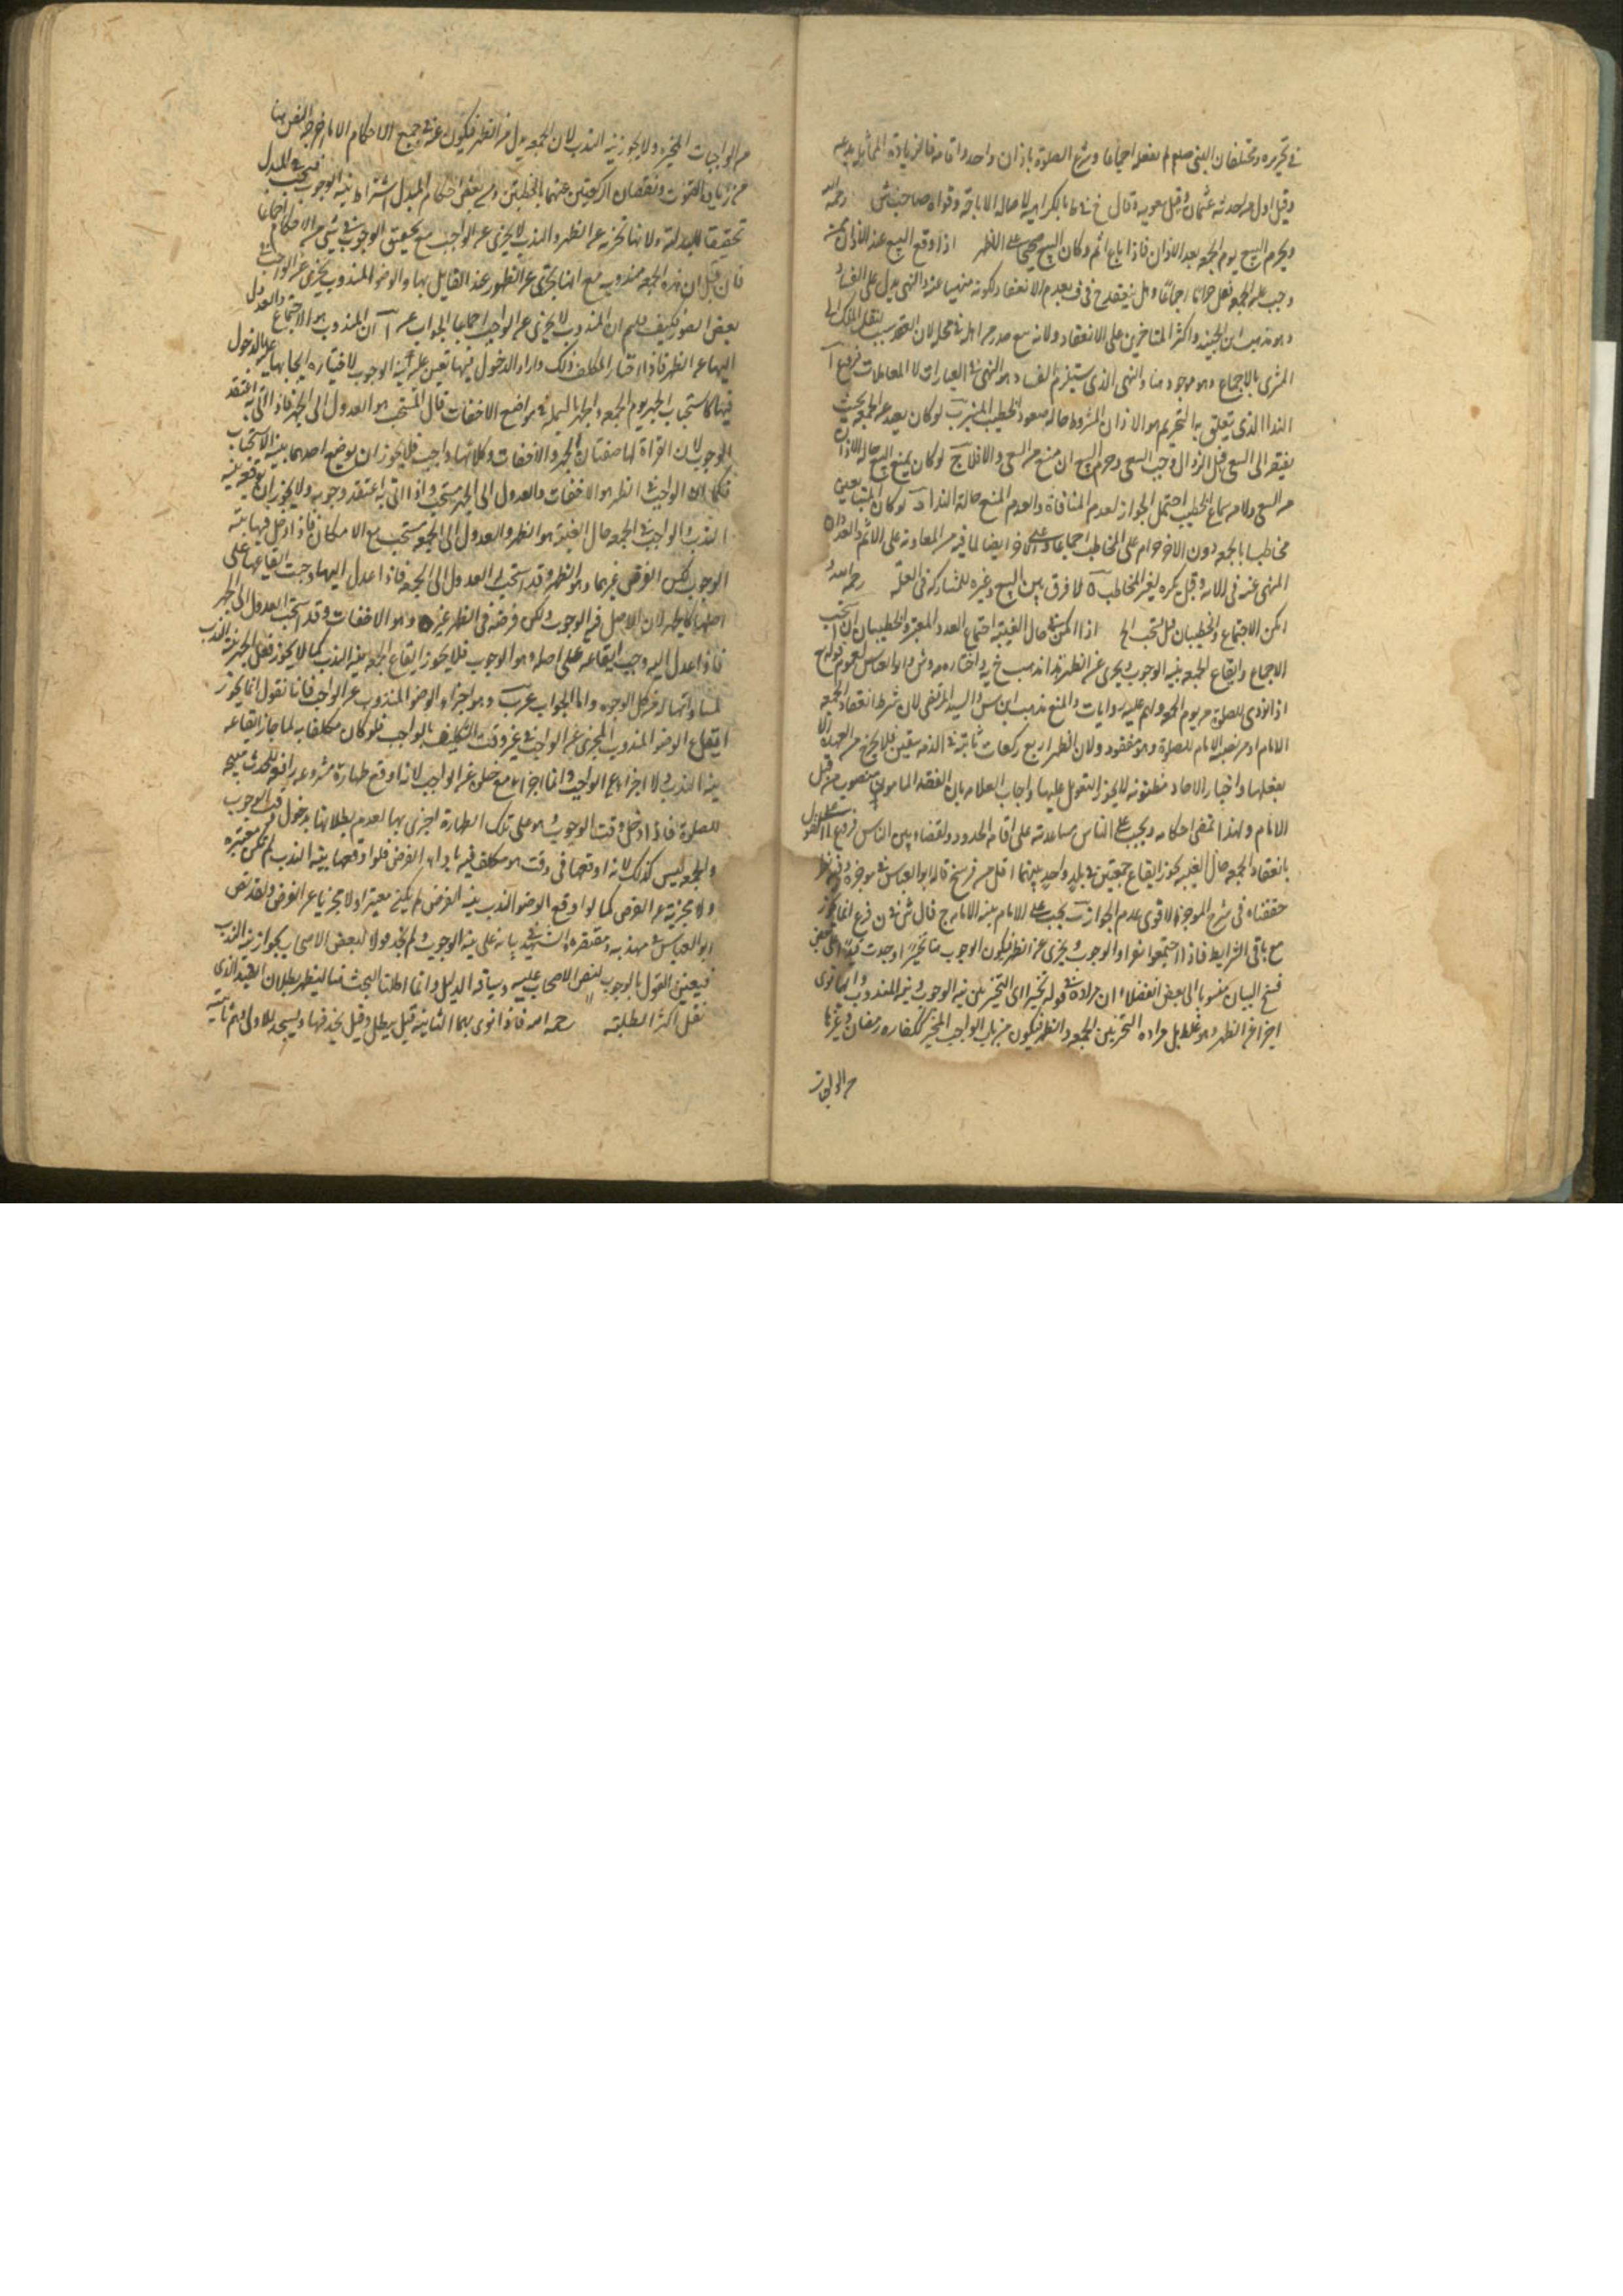 في تحريره ومختلفه لان النبي صلعم لم يفعله اجماعا وشرع الصلوة باذان واحد واقامة فالزيادة الثالث بدعه
وقيل اول من احدثه عثمان وقيل معوية وقال خ في ط بالكراهية لاصالة الاباحة وقواه صاحب ش رحمه الله
ويحرم البيع يوم الجمعه بعد الاذان فاذا باع اثم وكان البيع صحيحا على الاظهر اذا وقع البيع عند الاذان ممن
وجب عليه الجمعه فعل حراما اجماعا وهل ينعقد خ في ف بعدم الانعقاد لكونه منهيا عنه والنهي يدل على الفساد
وهو مذهب ابن الجنيد واكثر المتاخرين على الانعقاد ولانه بيع صدر من اهله في محله لان العقد سبب لنقل الملك الى
المشتري بالاجماع وهو موجود هنا والنهي الذي يستلزم الفساد هو النهي في العبادات لا المعاملات فروع آ
النداء الذي يتعلق به التحريم هو الاذان المشروط حاله صعود الخطيب المنبر ب لو كان بعيد عن الجمعه بحيث
يفتقر الى السعي قبل الزوال وجب السعي وحرم البيع ان منع من السعي والا فلا ج لو كان يمنع البيع حالة الاذان
من السعي ولا من سماع الخطيب احتمل الجواز لعدم المنافاة والعدم المنع حالة النداء د لو كان احد المتبايعين
مخاطبا بالجمعه دون الاخر حرام على المخاطب اجماعا وعلى الاخر ايضا لما فيه من المعاونة على الاثم والعدوان
المنهي عنه في الاية وقيل يكره لغير المخاطب ه لا فرق بين البيع وغيره للمشاركة في العلة رحمه الله
امكن الاجتماع والخطبتان قيل يستحب الخ اذا امكن في حال الغيبة اجتماع العدد المعتبر والخطبتان استحب
الاجماع وايقاع الجمعه بنية الوجوب ويجزي عن الظهر هذا مذهب خ في يه واختاره مه وش وابو العباس لعموم قوله تع
اذا نودي للصلوة من يوم الجمعه ولهم عليه روايات والمنع مذهب ابن س والسيد المرتضى لان شرط انعقاد الجمعه
الامام او من نصبه الامام للصلوة وهو مفقود ولان الظهر اربع ركعات ثابتة في الذمه بيقين فلا يخرج من العهدة الا
بفعلها واخبار الاحاد مظنونة لا يجوز التعويل عليها واجاب العلامة بان الفقيه المامون منصوب من قبل
الامام ولهذا تمضي احكامه ويجب على الناس مساعدته على اقامة الحدود والقضاء بين الناس فروع آ على القول
بانعقاد الجمعه حال الغيبه يجوز ايقاع جمعتين في بلد واحد بينهما اقل من فرسخ قاله ابو العباس في موجزه وفيه نظر
حققناه في شرح الموجز والاقوى عدم الجواز ب يجب على الامام بنية الامام ج قال ش في ن فرع انما يجوز
مع باقي الشرايط فاذا اجتمعوا نووا الوجوب ويجزي عن الظهر فيكون الوجوب هنا تخييرا وجدت قيدا على بعض
نسخ البيان منسوبا الى بعض الفضلاء ان مراده في قوله تخييرا اي التخيير بين نية الوجوب ونية المندوب وايهما نوى
اجزا عن الظهر وهو غلط بل مراده التخيير بين الجمعه والظهر فيكون من باب الواجب المخير ككفاره رمضان وغيرها
من الواجبات
من الواجبات المخيره ولا يجوز نية الندب لان الجمعه بدل من الظهر فيكون عنه في جميع الاحكام الا ما اخرجه النص هنا
من زيادة القنوت ونقصان الركعتين عنهما بالخطبتين ومن بعض احكام المبدل اشتراط نية الوجوب فيجب في البدل
تحقيقا للبدلية ولانها تجزيه عن الظهر والمندب لا يجزي عن الواجب مع تحقق الوجوب في شيء من الاحكام اجماعا
فان قيل ان هذه الجمعه مندوبه مع انها تجزي عن الظهر عند القايل بها والوضوء المندوب يجزي عن الواجب في
بعض الصور فكيف قلتم ان المندوب لا يجزي عن الواجب اجماعا الجواب عن آ ان المندوب هو الاجتماع والعدول
اليها عن الظهر فاذا اختار المكلف ذلك واراد الدخول فيها تعين عليه نية الوجوب لاختياره ايجابها عليه بالدخول
فيها كاستحباب الجهر يوم الجمعه والجهر بالبسملة في مواضع الاخفات قال المستحب هو العدول الى الجهر فاذا اتى به اعتقد
الوجوب لان القراة لها صفتان الجهر والاخفات وكلاهما واجب فلا يجوز ان يوقع احدهما بنية الاستحباب
فكما ان الواجب في الظهر هو الاخفات والعدول الى الجهر مستحب واذا اتى به اعتقد وجوبه ولا يجوز ان يوقعه بنية
الندب والواجب في الجمعه حال الغيبة هو الظهر والعدول الى الجمعه مستحب مع الامكان فاذا دخل فيها بنية
الوجوب لكن الفرض غيرها وهو الظهر وقد استحب العدول الى الجمعه فاذا عدل اليها وجبت ايقاعها على
اصلها كالجهر لان الاصل فيه الوجوب ولكن فرضه في الظهر غيره وهو الاخفات وقد استحب العدول الى الجهر
فاذا عدل اليه وجب ايقاعه على اصله وهو الوجوب فلا يجوز ايقاع الجمعه بنية الندب كما لا يجوز فعل الجهر بنية الندب
لمساواتها له في كل الوجوه واما الجواب عن ب وهو اجزاء الوضوء المندوب عن الواجب فانا نقول انما يجوز
ايقاع الوضوء المندوب المجزي عن الواجب في غير وقت التكليف بالواجب فلو كان مكلفا به لما جاز ايقاعه
بنية الندب ولا اجزاء عن الواجب وانما اجزاء مع خلوه عن الواجب لانه اوقع طهارة مشروعة رافعة للحدث مبيحة
للصلوة فاذا دخل وقت الوجوب وهو على تلك الطهارة اجزي بها لعدم بطلانها بدخول وقت الوجوب
والجمعه ليس كذلك لانه اوقعها في وقت هو مكلف فيه باداء الفرض فلو اوقعها بنية الندب لم تكن معتبره
ولا مجزية عن الفرض كما لو اوقع الوضوء الندب بنية الفرض لم يكن معتبرا ولا مجزيا عن الفرض ولقد نص
ابو العباس في مهذبه ومقتصره والشهيد في بيانه على نية الوجوب ولم نجد قولا لبعض الاصحاب بجواز نية الندب
فيعين القول بالوجوب لنص الاصحاب عليه وسياقة الدليل وانما اطلنا البحث هنا ليظهر بطلان القيد الذي
نقل اكثر الطلبة رحمه الله فاذا نوى بهما الثانية قيل يبطل وقيل يحذفهما ويسجد للاولى ويتم ثانية